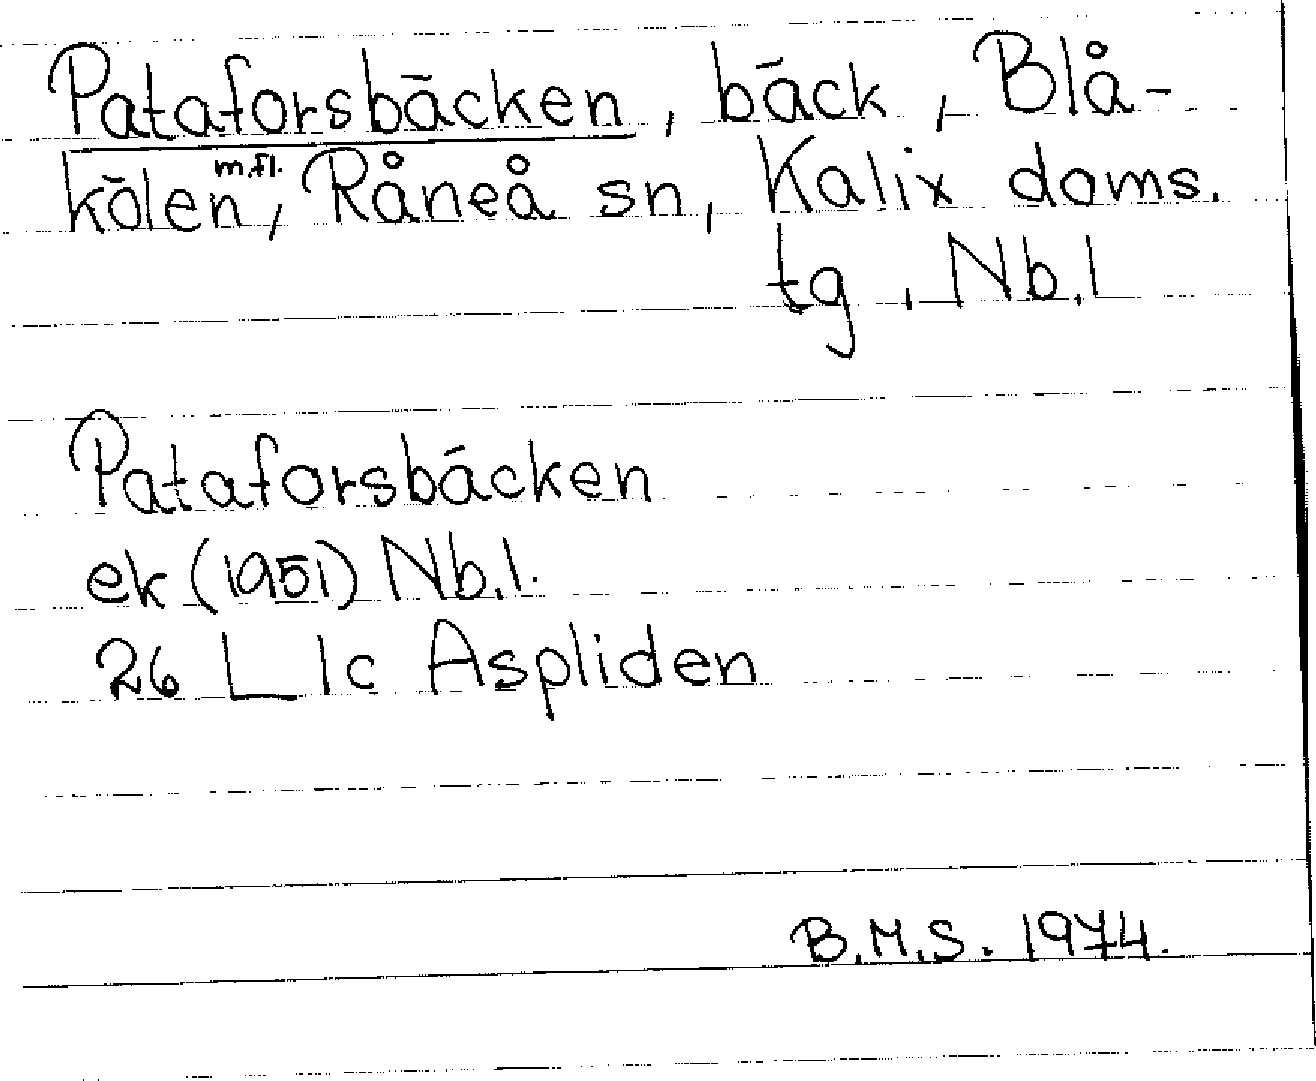 Pataforsbäcken, bäck, Blå-
kölen m.fl., Råneå sn, Kalix doms.
tg, Nb.l
Pataforsbäcken
ek (1951) Nb.l.
26 L 1c Aspliden
B.M.S. 1974.